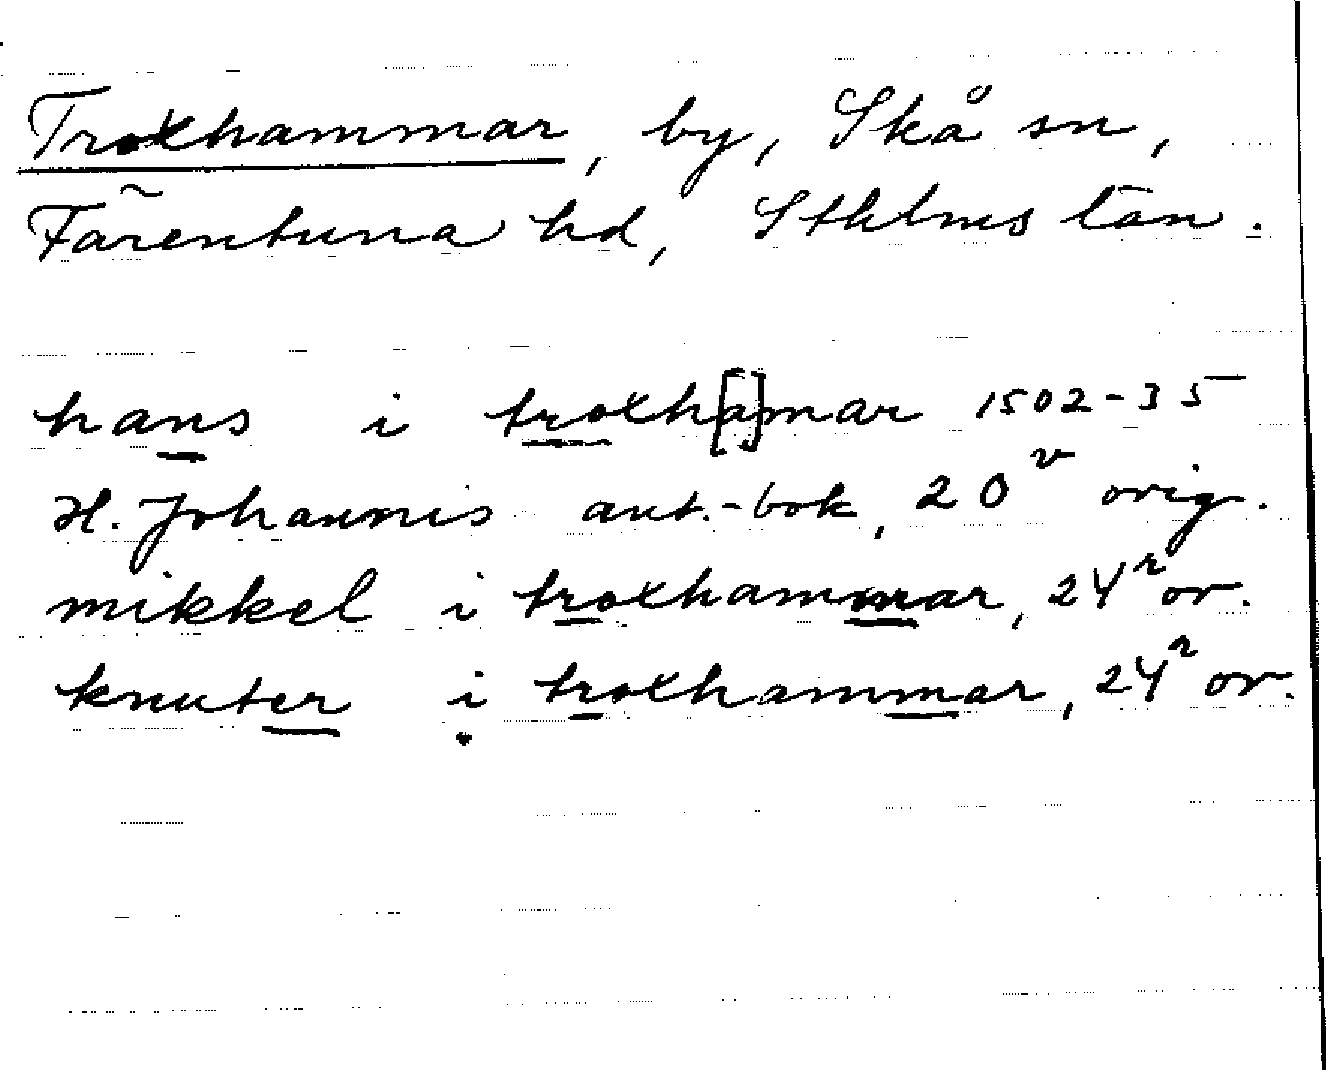 Troxhammar, by, Skå sn,
Färentuna hd, Sthlms län.
hans i troxh[a]mar 1502-35
H. Johannis ant.-bok, 20v orig.
mikkel i troxhammar, 24r or.
knuter i troxhammar, 24r or.